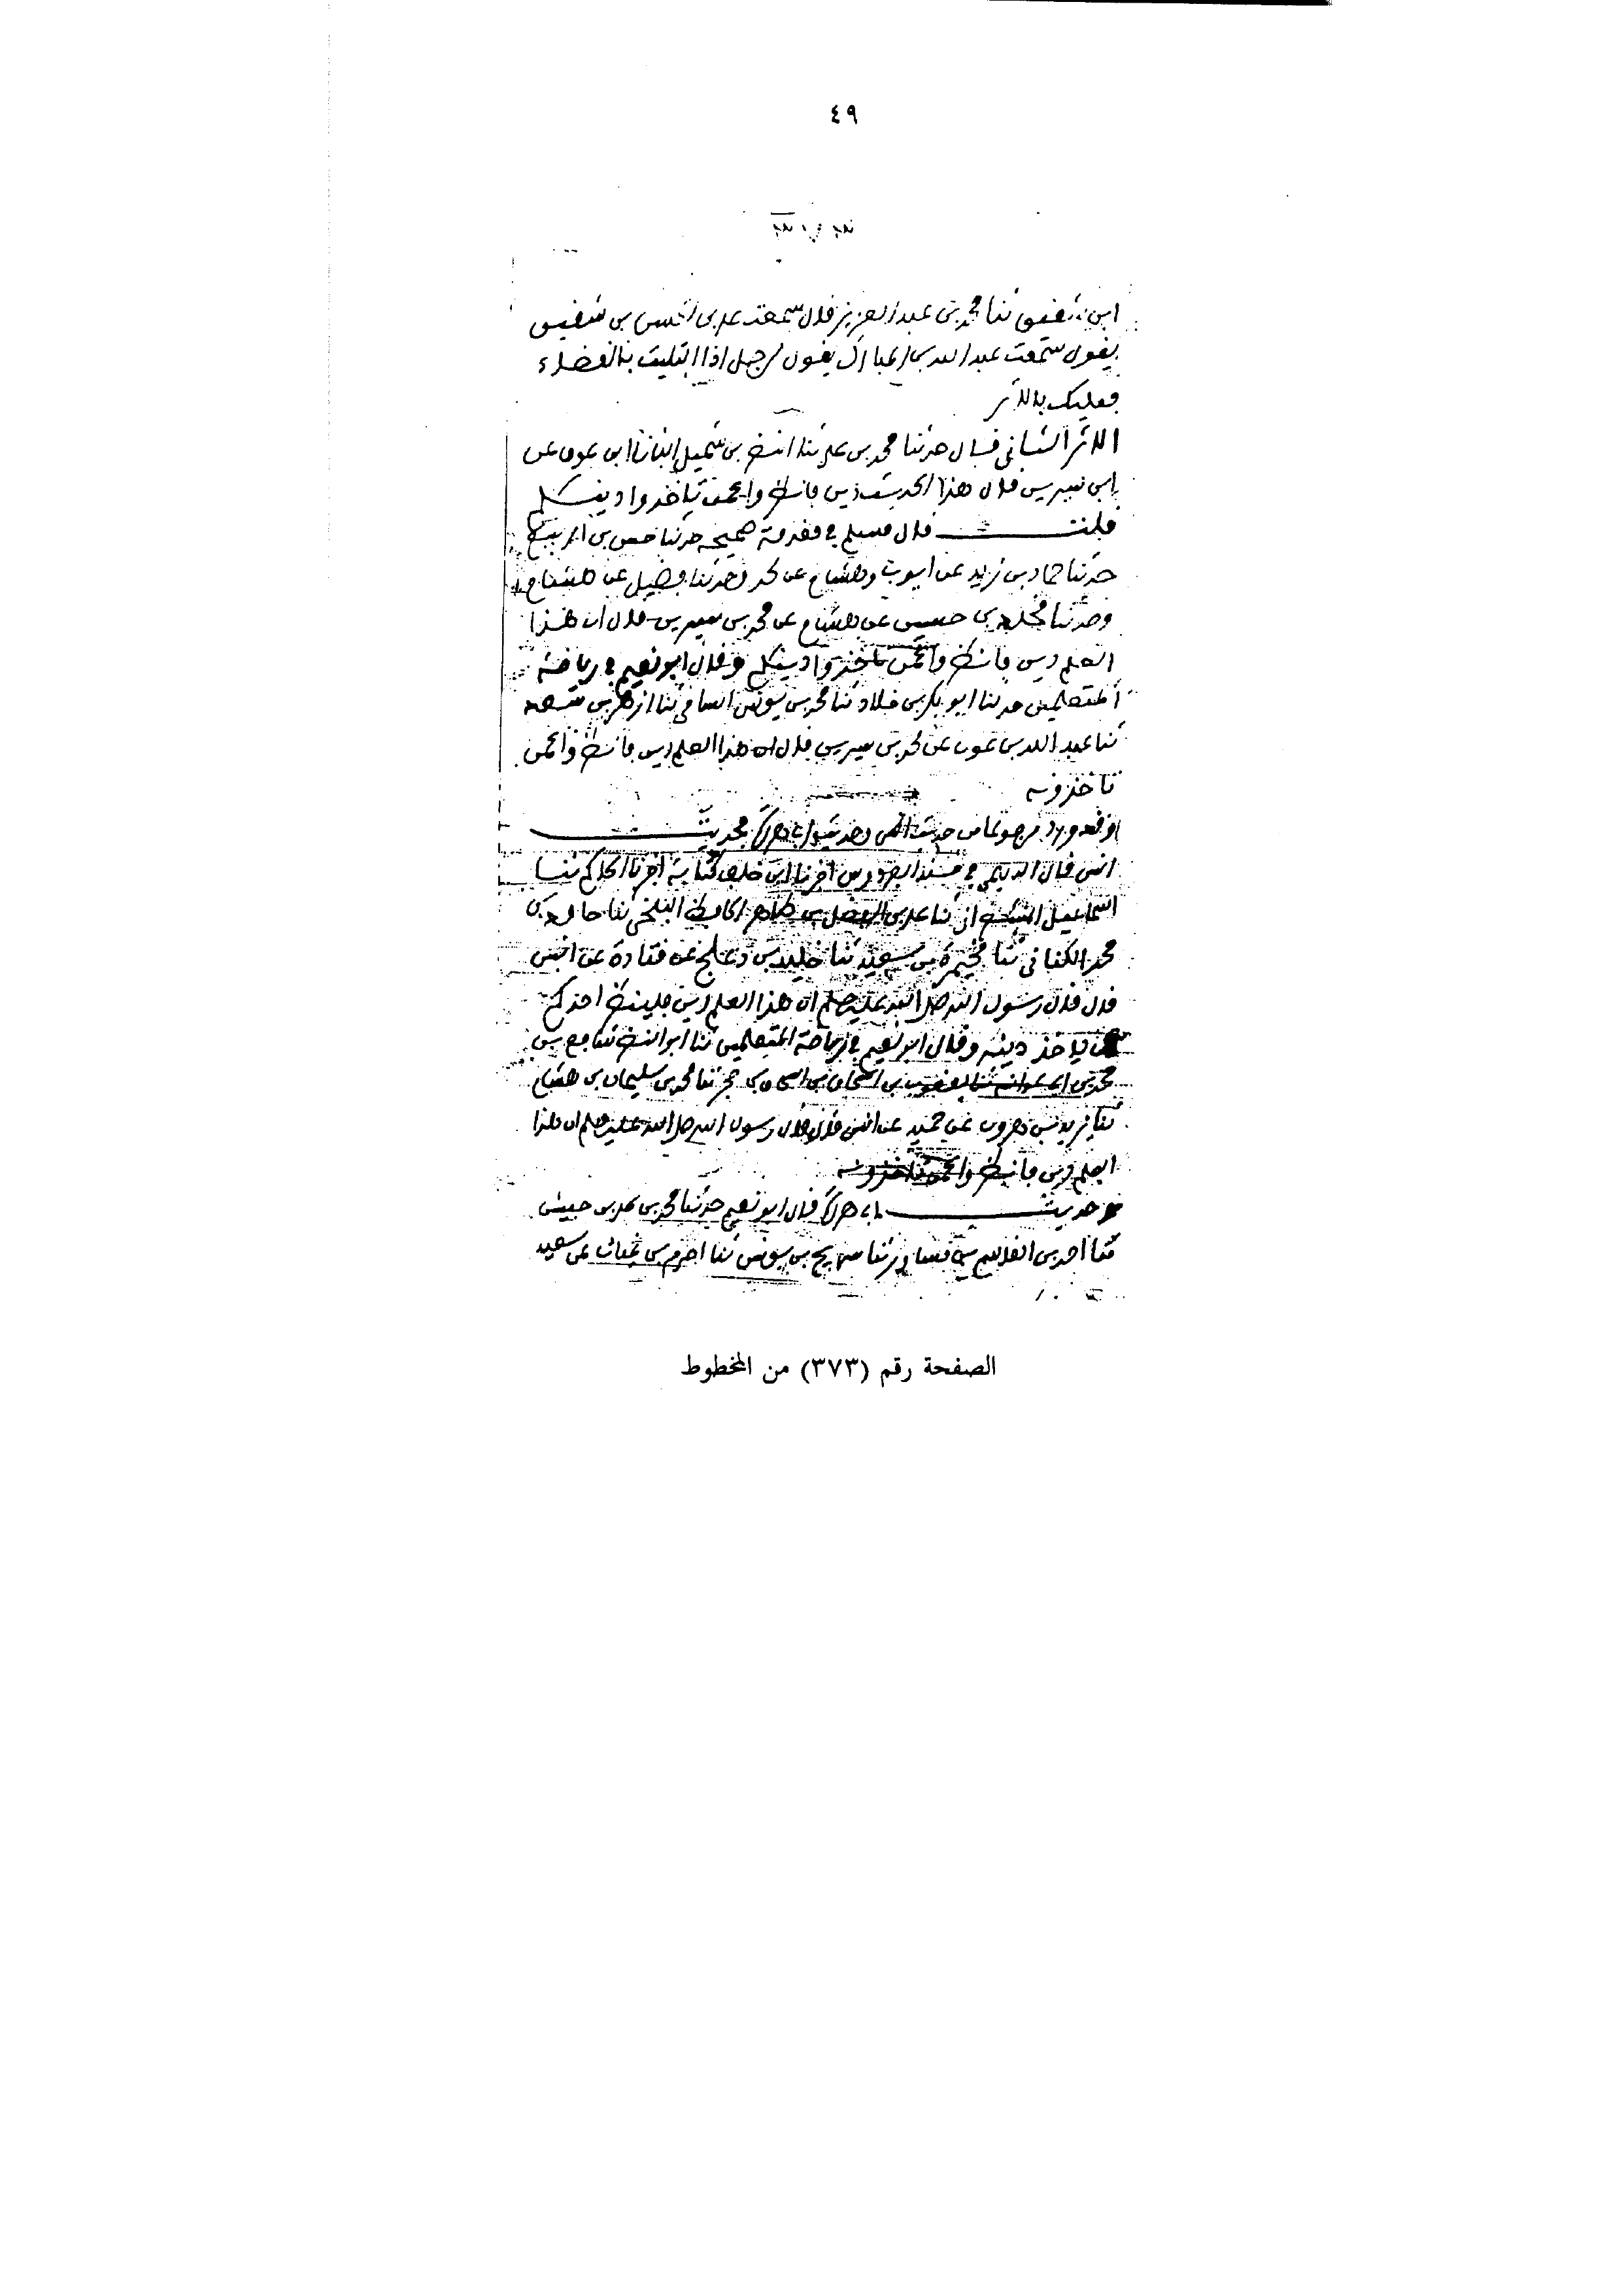 ٤٩
ابن شقيق ثنا محمد بن عبد العزيز قال سمعت علي بن الحسن بن شقيق
يقول سمعت عبد الله بن المبارك يقول لرجل اذا ابتليت بالقضاء
فعليك بالاثر
الاثر الثاني قال حدثنا محمد بن علي ثنا النضر بن شميل انبانا ابن عون عن
ابن سيرين قال هذا الحديث دين فانظروا عمن تاخذوا دينكم
قلت قال مسلم في مقدمة صحيحه حدثنا حسن بن الربيع
حدثنا حماد بن زيد عن ايوب وهشام عن محمد وحدثنا فضيل عن هشام
وحدثنا مخلد بن حسين عن هشام عن محمد بن سيرين قال ان هذا
العلم دين فانظروا عمن تاخذوا دينكم وقال ابو نعيم في رياضة
المتعلمين حدثنا ابو بكر بن خلاد ثنا محمد بن يونس السامي ثنا ازهر بن سعد
ثنا عبد الله بن عون عن محمد بن سيرين قال ان هذا العلم دين فانظروا عمن
تاخذونه
وقد ورد مرفوعا من حديث انس وحديث ابي هريرة فحديث
انس قال الديلمي في مسند الفردوس اخبرنا ابن خلف كتابة اخبرنا الحاكم ثنا
اسماعيل ثنا علي بن الفضل بن طاهر الحافظ البلخي ثنا حامد بن
محمد الكناني ثنا مخيمرة بن سعيد ثنا خليد بن دعلج عن قتادة عن انس
قال قال رسول الله صلى الله عليه وسلم ان هذا العلم دين فلينظر احدكم
ممن ياخذ دينه وقال ابو نعيم في رياضة المتعلمين ثنا ابو النضر شافع بن
محمد بن ابي عوانه ثنا يعقوب بن اسحاق بن اسحاق بن حجر ثنا محمد بن سليمان بن هشام
ثنا يزيد بن هرون عن حميد عن انس قال قال رسول الله صلى الله عليه وسلم ان هذا
العلم دين فانظروا عمن تاخذونه
وحديث ابي هريرة قال ابو نعيم حدثنا محمد بن علي بن حبيش
ثنا احمد بن القاسم بن مساور ثنا سريج بن يونس ثنا ابراهيم بن عن سعيد
الصفحة رقم (٣٧٣) من المخطوط